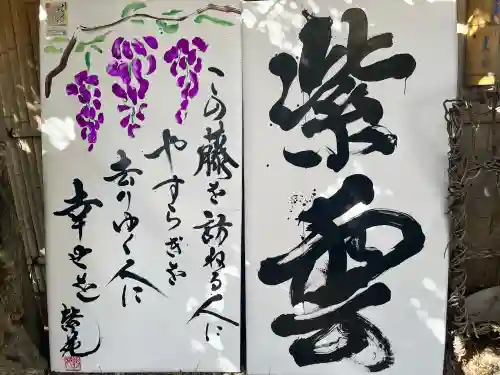 紫雲
この藤を訪ね る人に
やすらぎを
去りゆく人に
幸せを